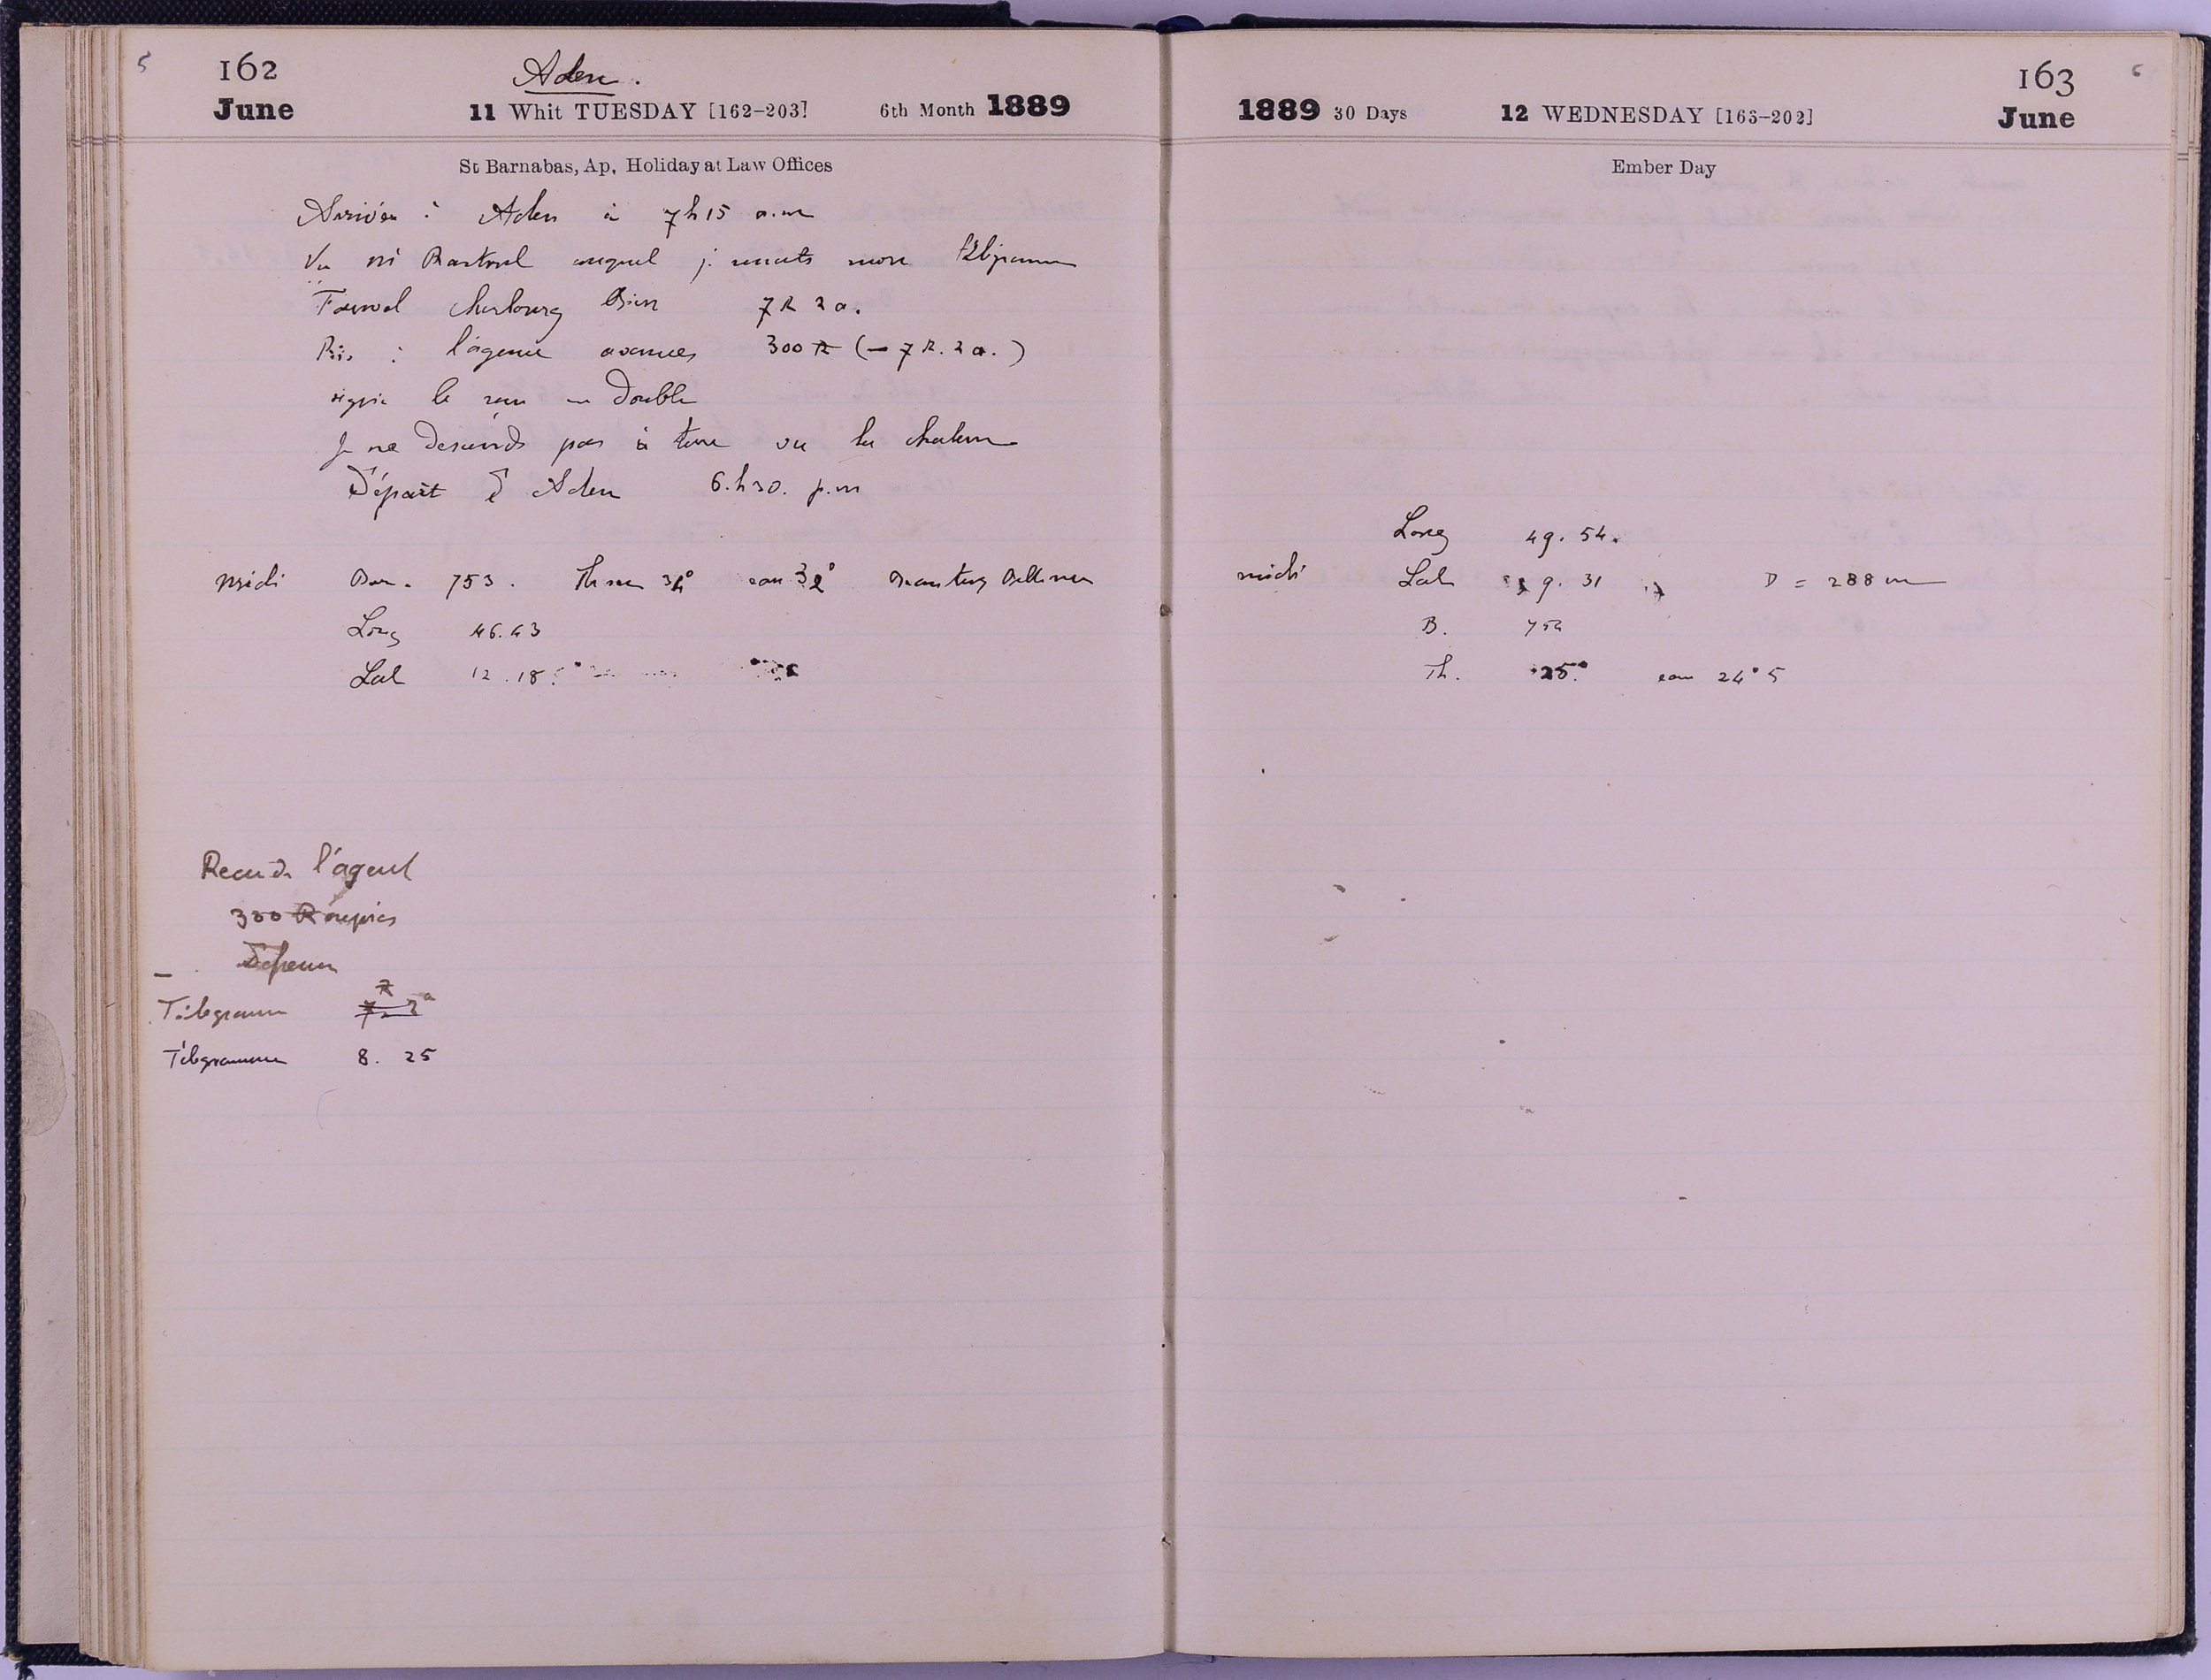 5
162
June
Aden.
11 Whit TUESDAY [162-203]
6th Month 1889
St Barnabas, Ap, Holiday at Law Offices
Arrivée à Aden à 7h15 a.m
Vu auquel je remets mon télégramme
Cherbourg Bien 7 R 2 a.
Pris à l'agence avances 300 R (– 7 R. 2 a.)
signé le reçu en double
Je ne descends pas à terre vu la chaleur
Départ d'Aden 6.h30. p.m
midi Bar. 753. Therm eau
Long 46.43
Lat 12.18
Recu de l'agent
300 Roupies
Télégramme 7. 2
Télégramme 8. 25
1889 30 Days
12 WEDNESDAY [163-202]
163
June
6
Ember Day
Long 49. 54.
midi Lat 9. 31 D = 288 m
B. 754
Th. 25° eau 24°5